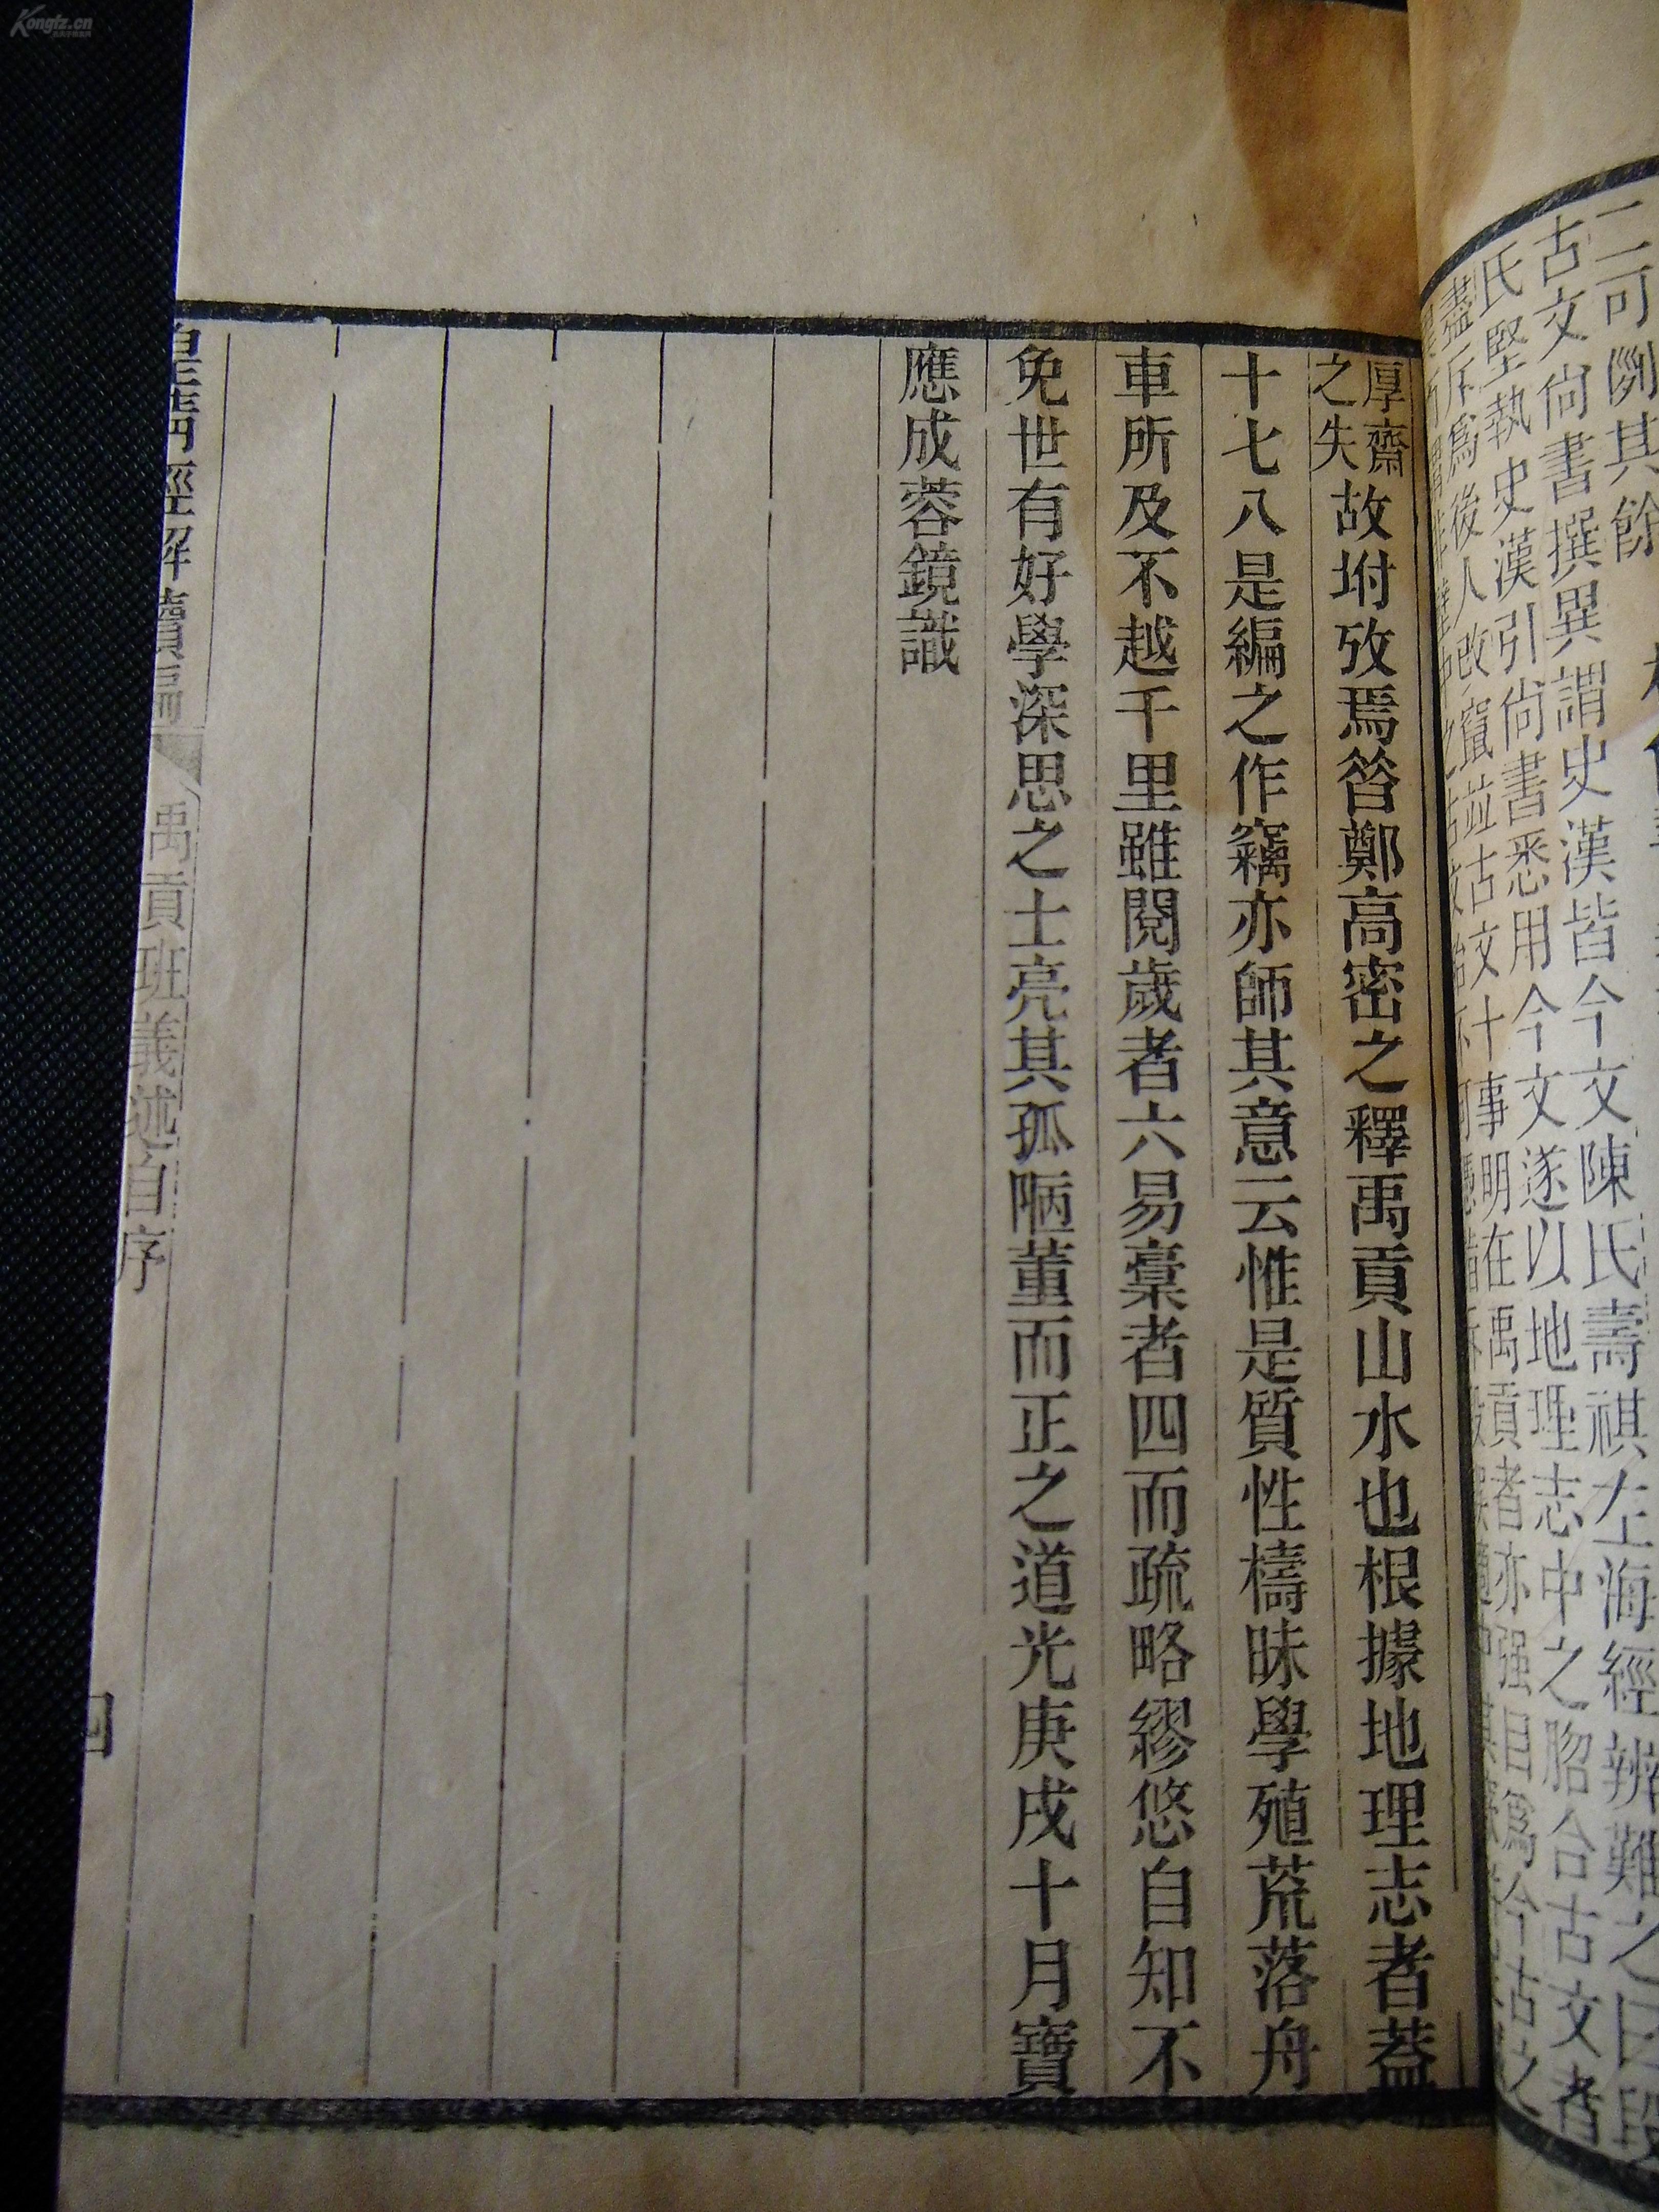 二可
劂其餘
古文尙書撰異謂史漢皆今文陳氏壽祺左海經辨難之曰段
氏堅執史漢引尙書悉用今文遂以地理志中之𦚾合古文者
盡斥爲後人改竄並古文十事明在禹貢者亦强目爲今古之
厚齋
之失
故坿攷焉昝鄭高密之釋禹貢山水也根據地理志者蓋
十七八是編之作竊亦師其意云惟是質性檮昧學殖荒落舟
車所及不越千里雖閱歲者六易稾者四而疏略繆悠自知不
免世有好學深思之士亮其孤陋董而正之道光庚戌十月寶
應成蓉鏡識
皇淸經解續編
禹貢班義述自序
四
Kongfz.cn